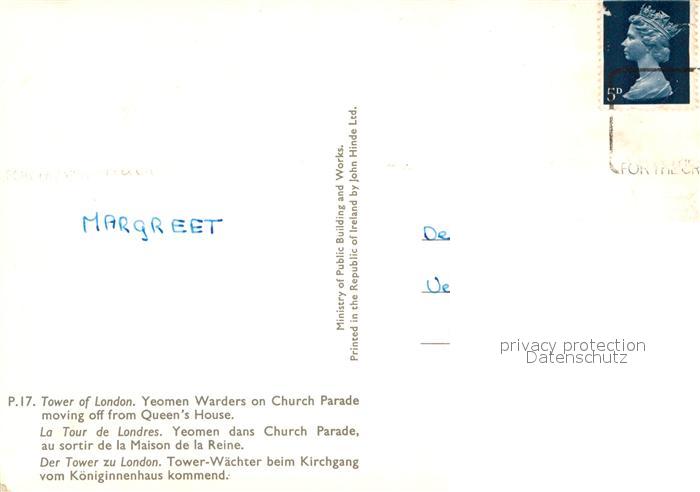 5D
FOR THE CR
MARGREET
De
Ve
privacy protection
Datenschutz
Ministry of Public Building and Works.
Printed in the Republic of Ireland by John Hinde Ltd.
P.17. Tower of London. Yeomen Warders on Church Parade
moving off from Queen's House.
La Tour de Londres. Yeomen dans Church Parade,
au sortir de la Maison de la Reine.
Der Tower zu London. Tower-Wächter beim Kirchgang
vom Königinnenhaus kommend.